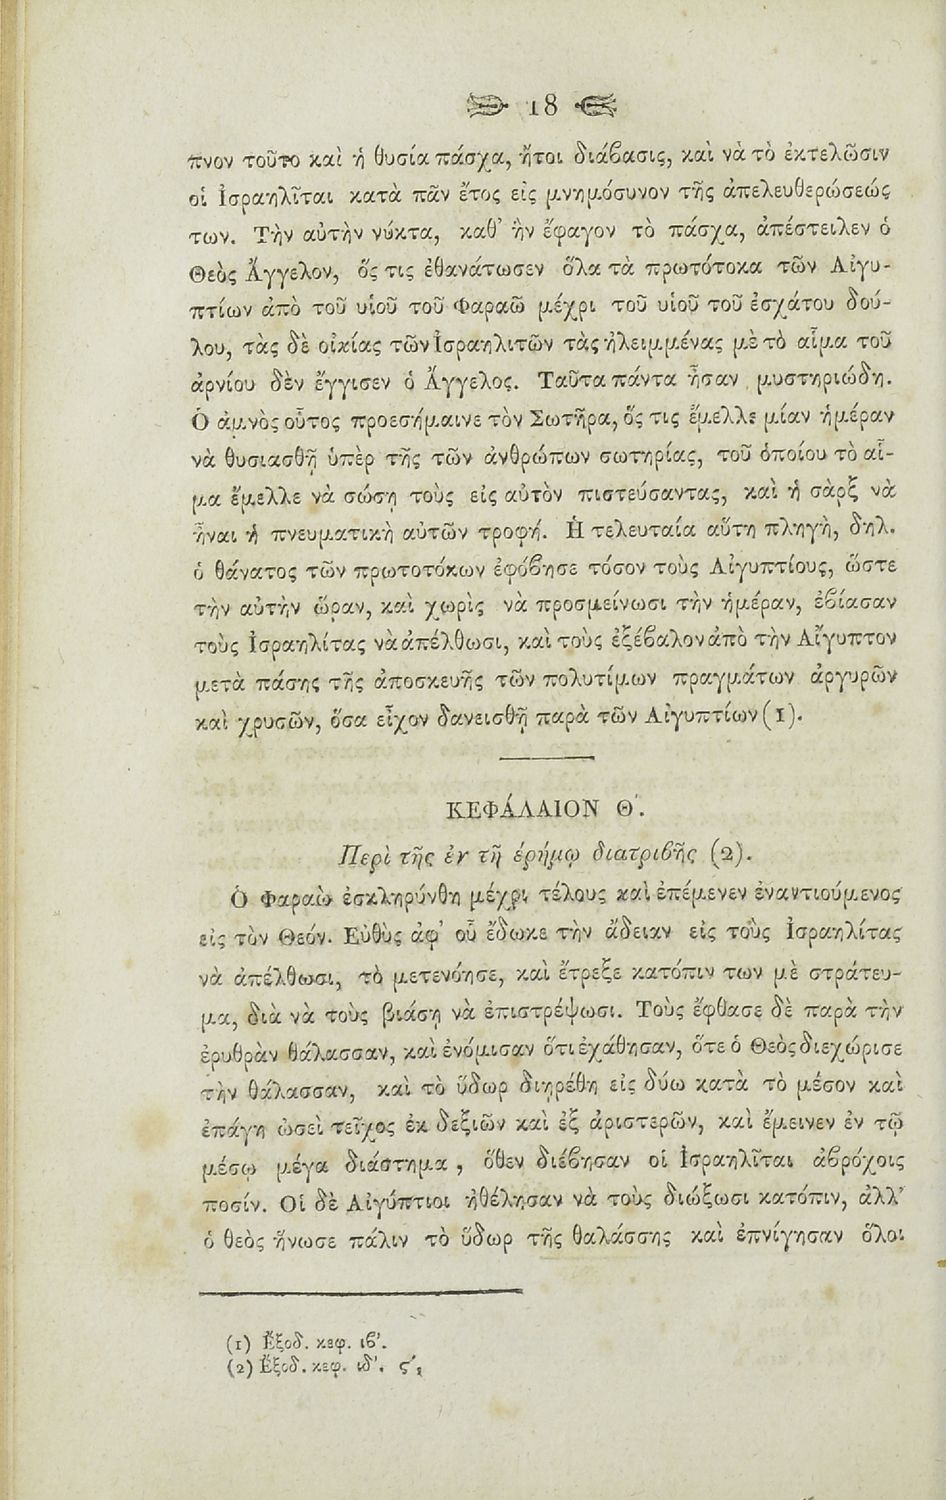 18
πνον τοῦτο καὶ ἡ θυσία πάσχα, ἤτοι διάβασις, καὶ νὰ τὸ ἐκτελῶσιν
οἱ Ἰσραηλῖται κατὰ πᾶν ἔτος εἰς μνημόσυνον τῆς ἀπελευθερώσεώς
των. Τὴν αὐτὴν νύκτα, καθ' ἣν ἔφαγον τὸ πάσχα, ἀπέστειλεν ὁ
Θεὸς Ἄγγελον, ὅς τις ἐθανάτωσεν ὅλα τὰ πρωτότοκα τῶν Αἰγυ-
πτίων ἀπὸ τοῦ υἱοῦ τοῦ Φαραῶ μέχρι τοῦ υἱοῦ τοῦ ἐσχάτου δού-
λου, τὰς δὲ οἰκίας τῶν Ἰσραηλιτῶν τὰς ἠλειμμένας μὲ τὸ αἷμα τοῦ
ἀρνίου δὲν ἔγγισεν ὁ Ἄγγελος. Ταῦτα πάντα ἦσαν μυστηριώδη.
Ὁ ἀμνὸς οὗτος προεσήμαινε τὸν Σωτῆρα, ὅς τις ἔμελλε μίαν ἡμέραν
νὰ θυσιασθῇ ὑπὲρ τῆς τῶν ἀνθρώπων σωτηρίας, τοῦ ὁποίου τὸ αἷ-
μα ἔμελλε νὰ σώσῃ τοὺς εἰς αὐτὸν πιστεύσαντας, καὶ ἡ σὰρξ νὰ
ἦναι ἡ πνευματικὴ αὐτῶν τροφή. Ἡ τελευταία αὕτη πληγὴ, δηλ.
ὁ θάνατος τῶν πρωτοτόκων ἐφόβησε τόσον τοὺς Αἰγυπτίους, ὥστε
τὴν αὐτὴν ὥραν, καὶ χωρὶς νὰ προσμείνωσι τὴν ἡμέραν, ἐβίασαν
τοὺς Ἰσραηλίτας νὰ ἀπέλθωσι, καὶ τοὺς ἐξέβαλον ἀπὸ τὴν Αἴγυπτον
μετὰ πάσης τῆς ἀποσκευῆς τῶν πολυτίμων πραγμάτων ἀργυρῶν
καὶ χρυσῶν, ὅσα εἶχον δανεισθῆ παρὰ τῶν Αἰγυπτίων (1).
ΚΕΦΆΛΑΙΟΝ Θ΄.
Περὶ τῆς ἐν τῇ ἐρήμῳ διατριβῆς (2).
Ὁ Φαραὼ ἐσκληρύνθη μέχρι τέλους καὶ ἐπέμενεν ἐναντιούμενος
εἰς τὸν Θεόν. Εὐθὺς ἀφ' οὗ ἔδωκε τὴν ἄδειαν εἰς τοὺς Ἰσραηλίτας
νὰ ἀπέλθωσι, τὸ μετενόησε, καὶ ἔτρεξε κατόπιν των μὲ στράτευ-
μα, διὰ νὰ τοὺς βιάσῃ νὰ ἐπιστρέψωσι. Τοὺς ἔφθασε δὲ παρὰ τὴν
ἐρυθρὰν θάλασσαν, καὶ ἐνόμισαν ὅτι ἐχάθησαν, ὅτε ὁ Θεὸς διεχώρισε
τὴν θάλασσαν, καὶ τὸ ὕδωρ διῃρέθη εἰς δύω κατὰ τὸ μέσον καὶ
ἐπάγη ὡσεὶ τεῖχος ἐκ δεξιῶν καὶ ἐξ ἀριστερῶν, καὶ ἔμεινεν ἐν τῷ
μέσῳ μέγα διάστημα, ὅθεν διέβησαν οἱ Ἰσραηλῖται ἀβρόχοις
ποσίν. Οἱ δὲ Αἰγύπτιοι ἠθέλησαν νὰ τοὺς διώξωσι κατόπιν, ἀλλ'
ὁ θεὸς ἥνωσε πάλιν τὸ ὕδωρ τῆς θαλάσσης καὶ ἐπνίγησαν ὅλοι
(1) Ἔξοδ. κεφ. ιβ'.
(2) Ἔξοδ. κεφ. ιδ'. ς',